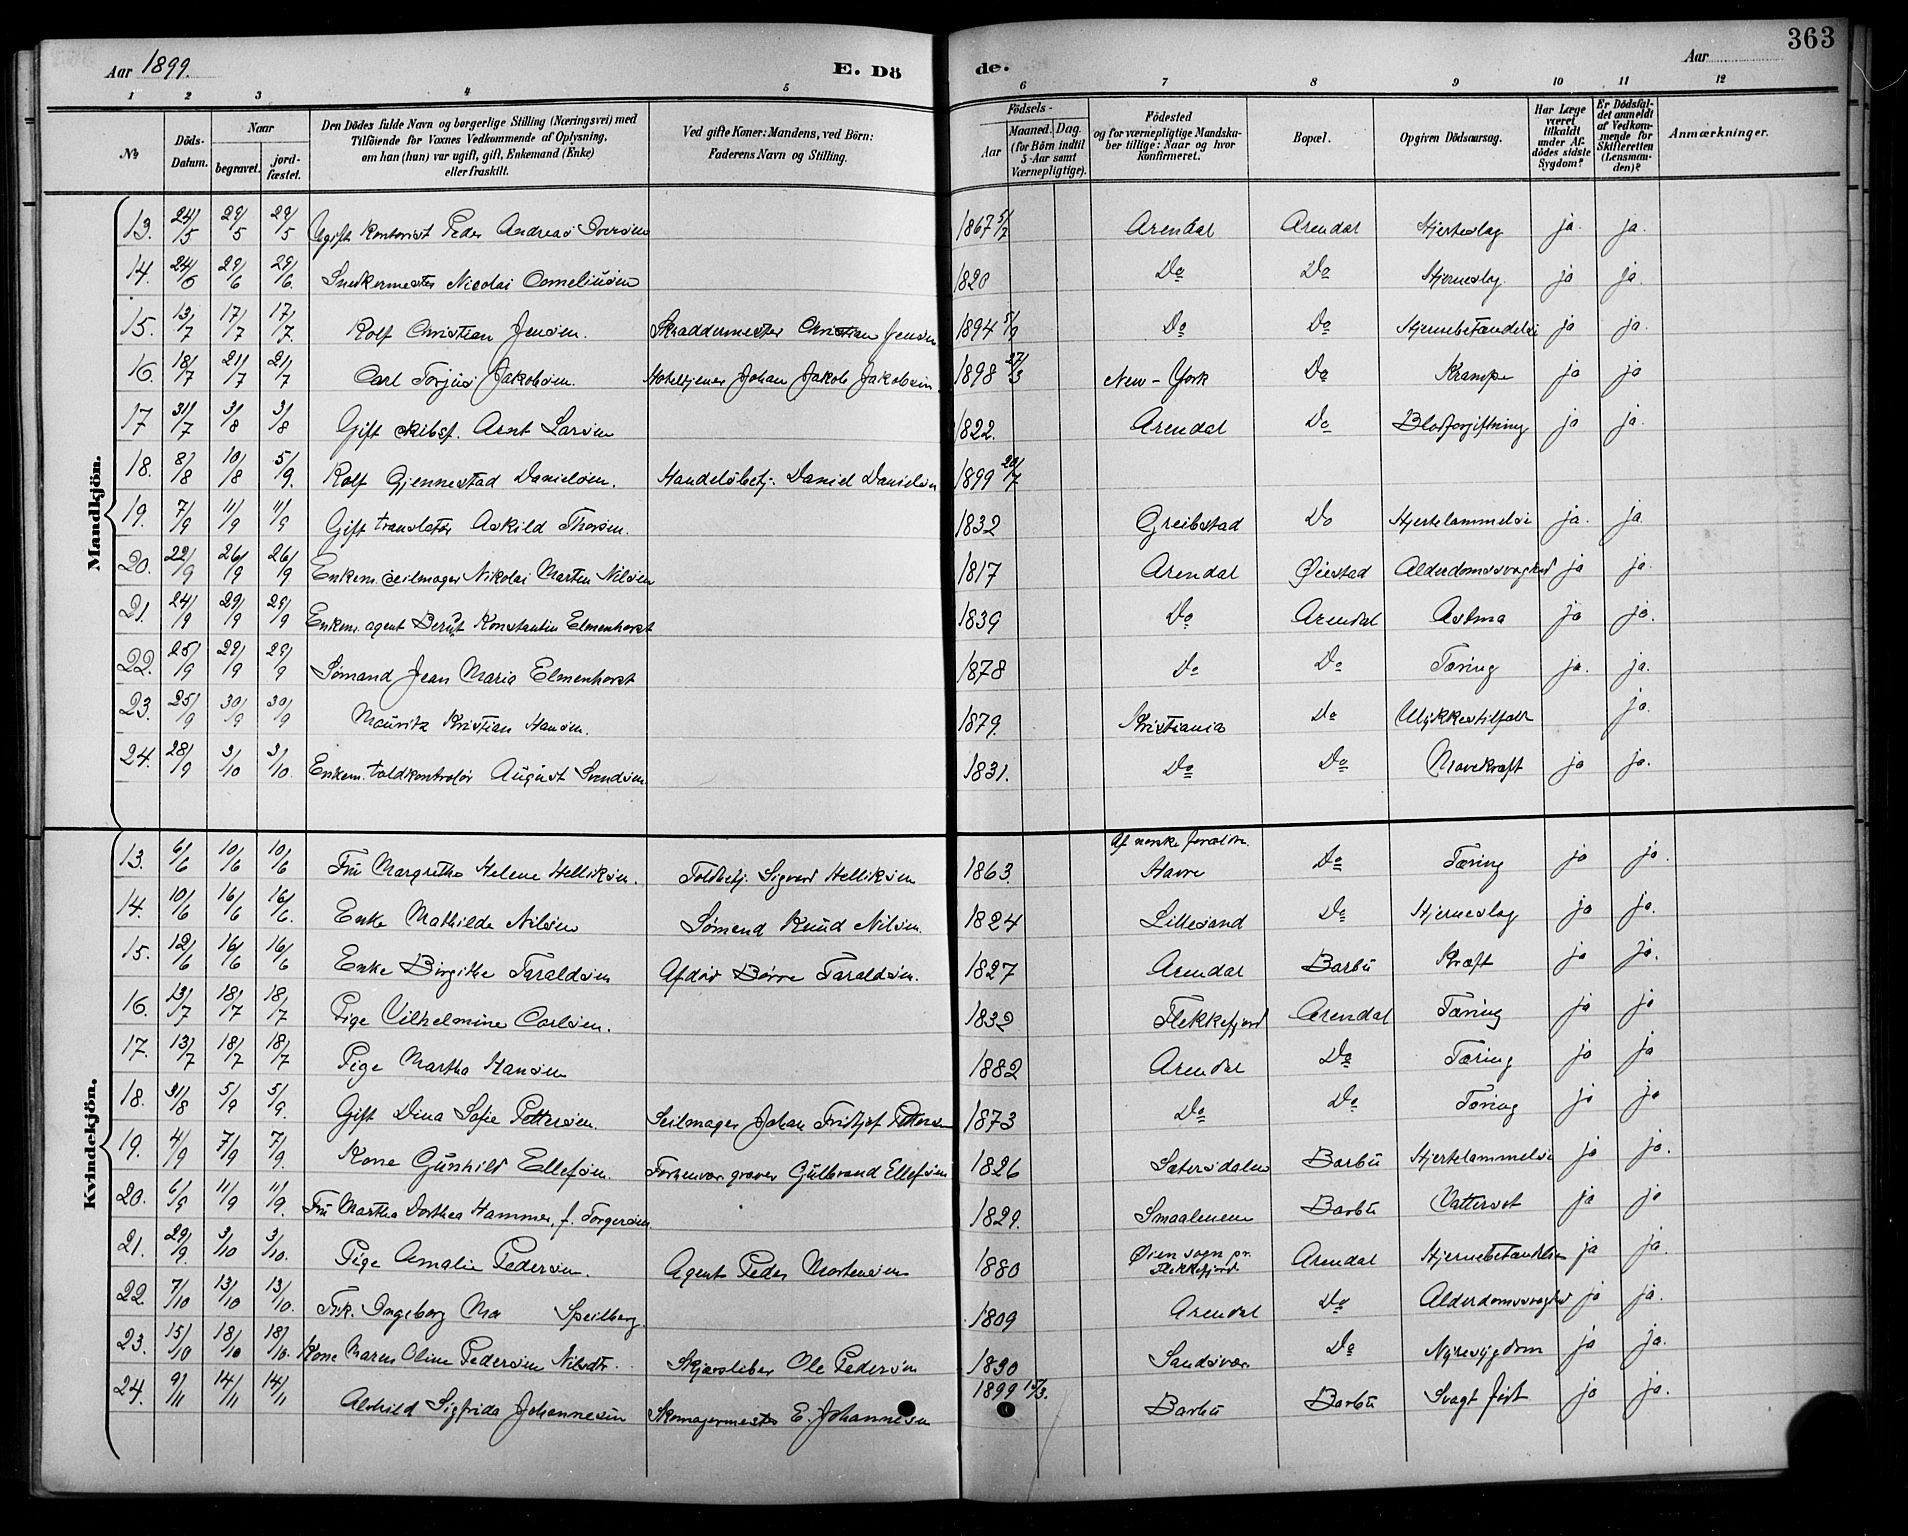 363
Aar 1899.
E. Dö de.
Aar
1 2 3 4 5 6 7 8 9 10 11 12
No
Döds-Datum.
Naar
begravet.
jord-fæstet.
Den Dödes fulde Navn og borgerlige Stilling (Næringsvei) med
Tilföiende for Voxnes Vedkommende af Oplysning,
om han (hun) var ugift, gift, Enkemand (Enke)
eller fraskilt.
Ved gifte Koner: Mandens, ved Börn:
Faderens Navn og Stilling.
Födsels-
Aar
Maaned. Dag.
(for Börn indtil
5 Aar samt
Værnepligtige).
Födested
og for værnepligtige Mandska-
ber tillige: Naar og hvor
konfirmeret.
Bopæl.
Opgiven Dödsaarsag.
Har Læge
været
tilkaldt
under Af-
dödes sidste
Sygdom?
Er Dödsfal-
det anmeldt
af Vedkom-
mende for
Skifteretten
(Lensman-
den)?
Anmærkninger.
Mandkjön.
13. 24/5 29/5 29/5 Ugift Kontorist Peder Andreas Iversen 1867 5/2 Arendal Arendal Hjerteslag ja. ja.
14. 24/6 29/6 29/6. Snedkermester Nicolai Corneliusen 1820 Do Do Hjerneslag ja ja.
15. 13/7 17/7 17/7. Rolf Christian Jensen. Skraddermester Christian Jensen 1894 5/9 Do Do Hjernebetændelse ja ja.
16. 18/7 21/7 21/7 Carl Torjus Jakobsen. Hoteltjener Johan Jakob Jakobsen. 1898 27/3 New-York Do Krampe ja ja
17 31/7 3/8 3/8 Gift skibsf. Arnt Larsen 1822. Arendal Do Blodforgiftning ja ja.
18. 8/8 10/8 5/9. Rolf Gjennestad Danielsen. Handelsbetj. Daniel Danielsen 1899 20/7
19. 7/9 11/9 11/9 Gift translatør Askild Thorsen. 1832 Greibstad Do Hjertelammelse ja. ja
20. 22/9 26/9 26/9 Enkem. seilmager Nikolai Marten Nilsen 1817 Arendal Øiestad Alderdomssvaghed ja ja.
21. 24/9 29/9 29/9 Enkem. agent Berut Konstantin Elmenhorst 1839 Do Arendal Astma ja ja.
22. 25/9 29/9 29/9 Sømand Jean Maria Elmenhorst 1878 Do Do Tæring ja. ja.
23. 25/9 30/9 30/9 Mauritz Kristian Hansen. 1879. Kristiania Do Ulykkestilfæld ja.
24. 28/9 3/10 3/10. Enkem. toldkontrolør August Svendsen 1831. Do Do Mavekræft ja ja.
Kvindekjön.
13. 6/6 10/6 10/6 Fru Margrethe Helene Helliksen. Toldbetj. Sigvard Helliksen 1863. Af norske forældre. Havre Do Tæring ja ja.
14. 10/6 16/6 16/6. Enke Mathilde Nilsen Sømand Knud Nilsen. 1824 Lillesand Do Hjerneslag ja ja.
15. 12/6 16/6 16/6 Enke Birgitte Taraldsen Afdøde Børre Taraldsen. 1827 Arendal Barbu Kræft ja ja.
16. 13/7 18/7 18/7 Pige Vilhelmine Carlsen. 1832 Flekkefjord Arendal Tæring ja ja
17. 13/7 18/7 18/7 Pige Martha Hansen 1882 Arendal Do Tæring ja ja
18. 31/8 5/9 5/9. Gift Dina Sofie Pettersen. Seilmager Johan Fridtjof Pettersen 1873 Do Do Tæring ja ja
19. 4/9 7/9 7/9. Kone Gunhild Ellefsen. Forhenvær. graver Gulbrand Ellefsen 1826 Sætersdalen Barbu Hjertelammelse ja ja.
20. 6/9 11/9 11/9. Fru Martha Dorthea Hammer, f. Torgersen 1829. Smaalenene Barbu Vattersot ja ja
21. 29/9. 3/10 3/10. Pige Amalie Pedersen. Agent Peder Mortensen 1880 Øien sogn pr. Flekkefjord Arendal Hjernebetændelse ja ja.
22. 7/10 13/10 13/10. Frk. Ingeborg Ma Speilberg. 1809 Arendal Do Alderdomssvaghed ja ja.
23. 15/10 18/10 18/10. Kone Maren Oline Pedersen Nilsdtr. Skjærsliber Ole Pedersen 1830 Sandsvær Do Nyresygdom ja ja.
24. 9/11 14/11 14/11 Alvhild Sigfrida Johannesen Skomagermester E. Johannesen 1899 15/3. Barbu Barbu Svagt født ja ja.